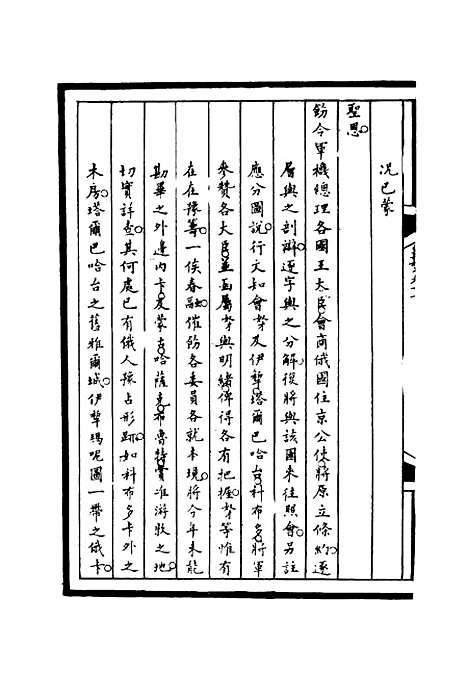 況已蒙
聖恩。
飭令軍機總理各國王大臣會商俄國住京公使將原立條約逐
層與之剖辯逐字與之分解復將與該國來往照會另註
應分圖說行文知會孥及伊犂塔爾巴哈台科布多將軍
參贊各大臣並函屬孥與明緒俾得各有把握孥等惟有
在在豫籌一俟春融催飭各委員各就本境將今年未能
勘畢之外邊內卡及蒙古哈薩克布魯特實准游牧之地
切實詳查其何處已有俄人豫占形跡如科布多卡外之
木房塔爾巴哈台之舊雅爾城伊犂瑪呢圖一帶之俄卡